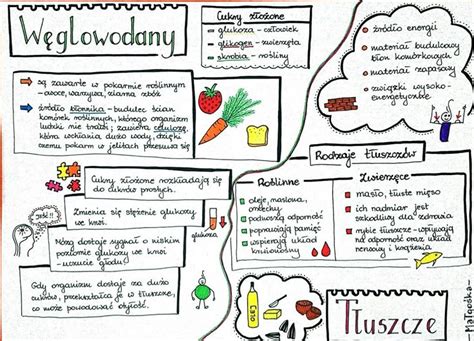 Węglowodany
Cukry złożone
glukoza - człowiek
glikogen - zwierzęta
skrobia - rośliny
są zawarte w pokarmie roślinnym
- owoce, warzywa, ziarna zbóż.
źródło błonnika - budulec ścian
komórek roślinnych, którego organizm
ludzki nie trawi; zawiera celulozę,
która wchłania dużo wody, dzięki
czemu pokarm w jelitach przesuwa się
Cukry złożone rozkładają się
do cukrów prostych.
Zmienia się stężenie glukozy
we krwi.
Mózg dostaje sygnał o niskim
poziomie glukozy we krwi
- uczucie głodu
Gdy organizm dostaje za dużo
cukrów, przekształca je w tłuszcze,
co może powodować otyłość.
JEŚĆ!!
glukoza
źródło energii
materiał budulcowy
błon komórkowych
materiał zapasowy
związki wysoko-
energetyczne
Rodzaje tłuszczów
Roślinne
oleje, masłowa,
orzechy
podnoszą odporność
poprawiają pamięć
wspierają układ
krwionośny
Zwierzęce
masło, tłuste mięso
ich nadmiar jest
szkodliwy dla zdrowia
rybie tłuszcze - wpływają
na odporność oraz układ
nerwowy i krążenia
OLEJ
Tłuszcze
-Małgośka-